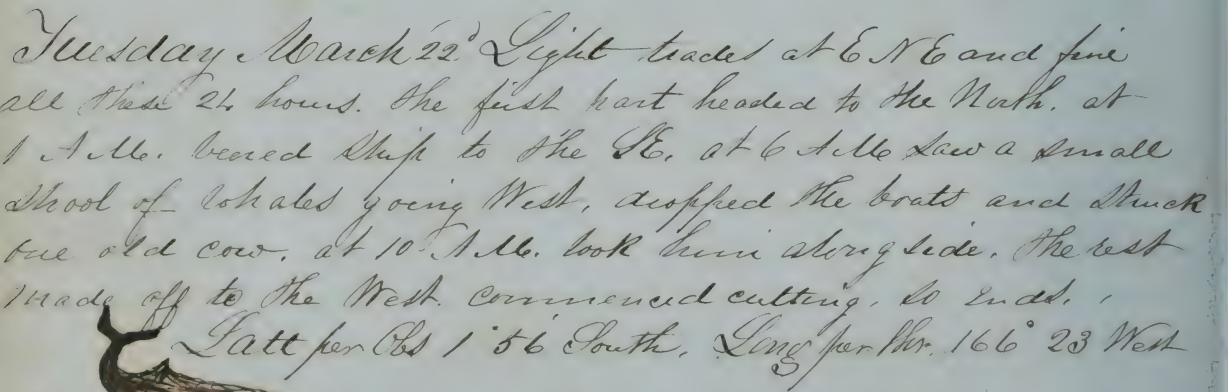 Tuesday March 22d Light trades at E N E and fine
all these 24 hours. the first part headed to the North. at
1 A.M. veered Ship to the SE. at 6 A M saw a small
shool of whales going West, dropped the boats and Struck
one old cow. at 10 A.M. took him along side. the rest
made off to the West. commenced cutting. so Ends.
Latt per Obs 1° 56 South. Long per Chr. 166° 23 West